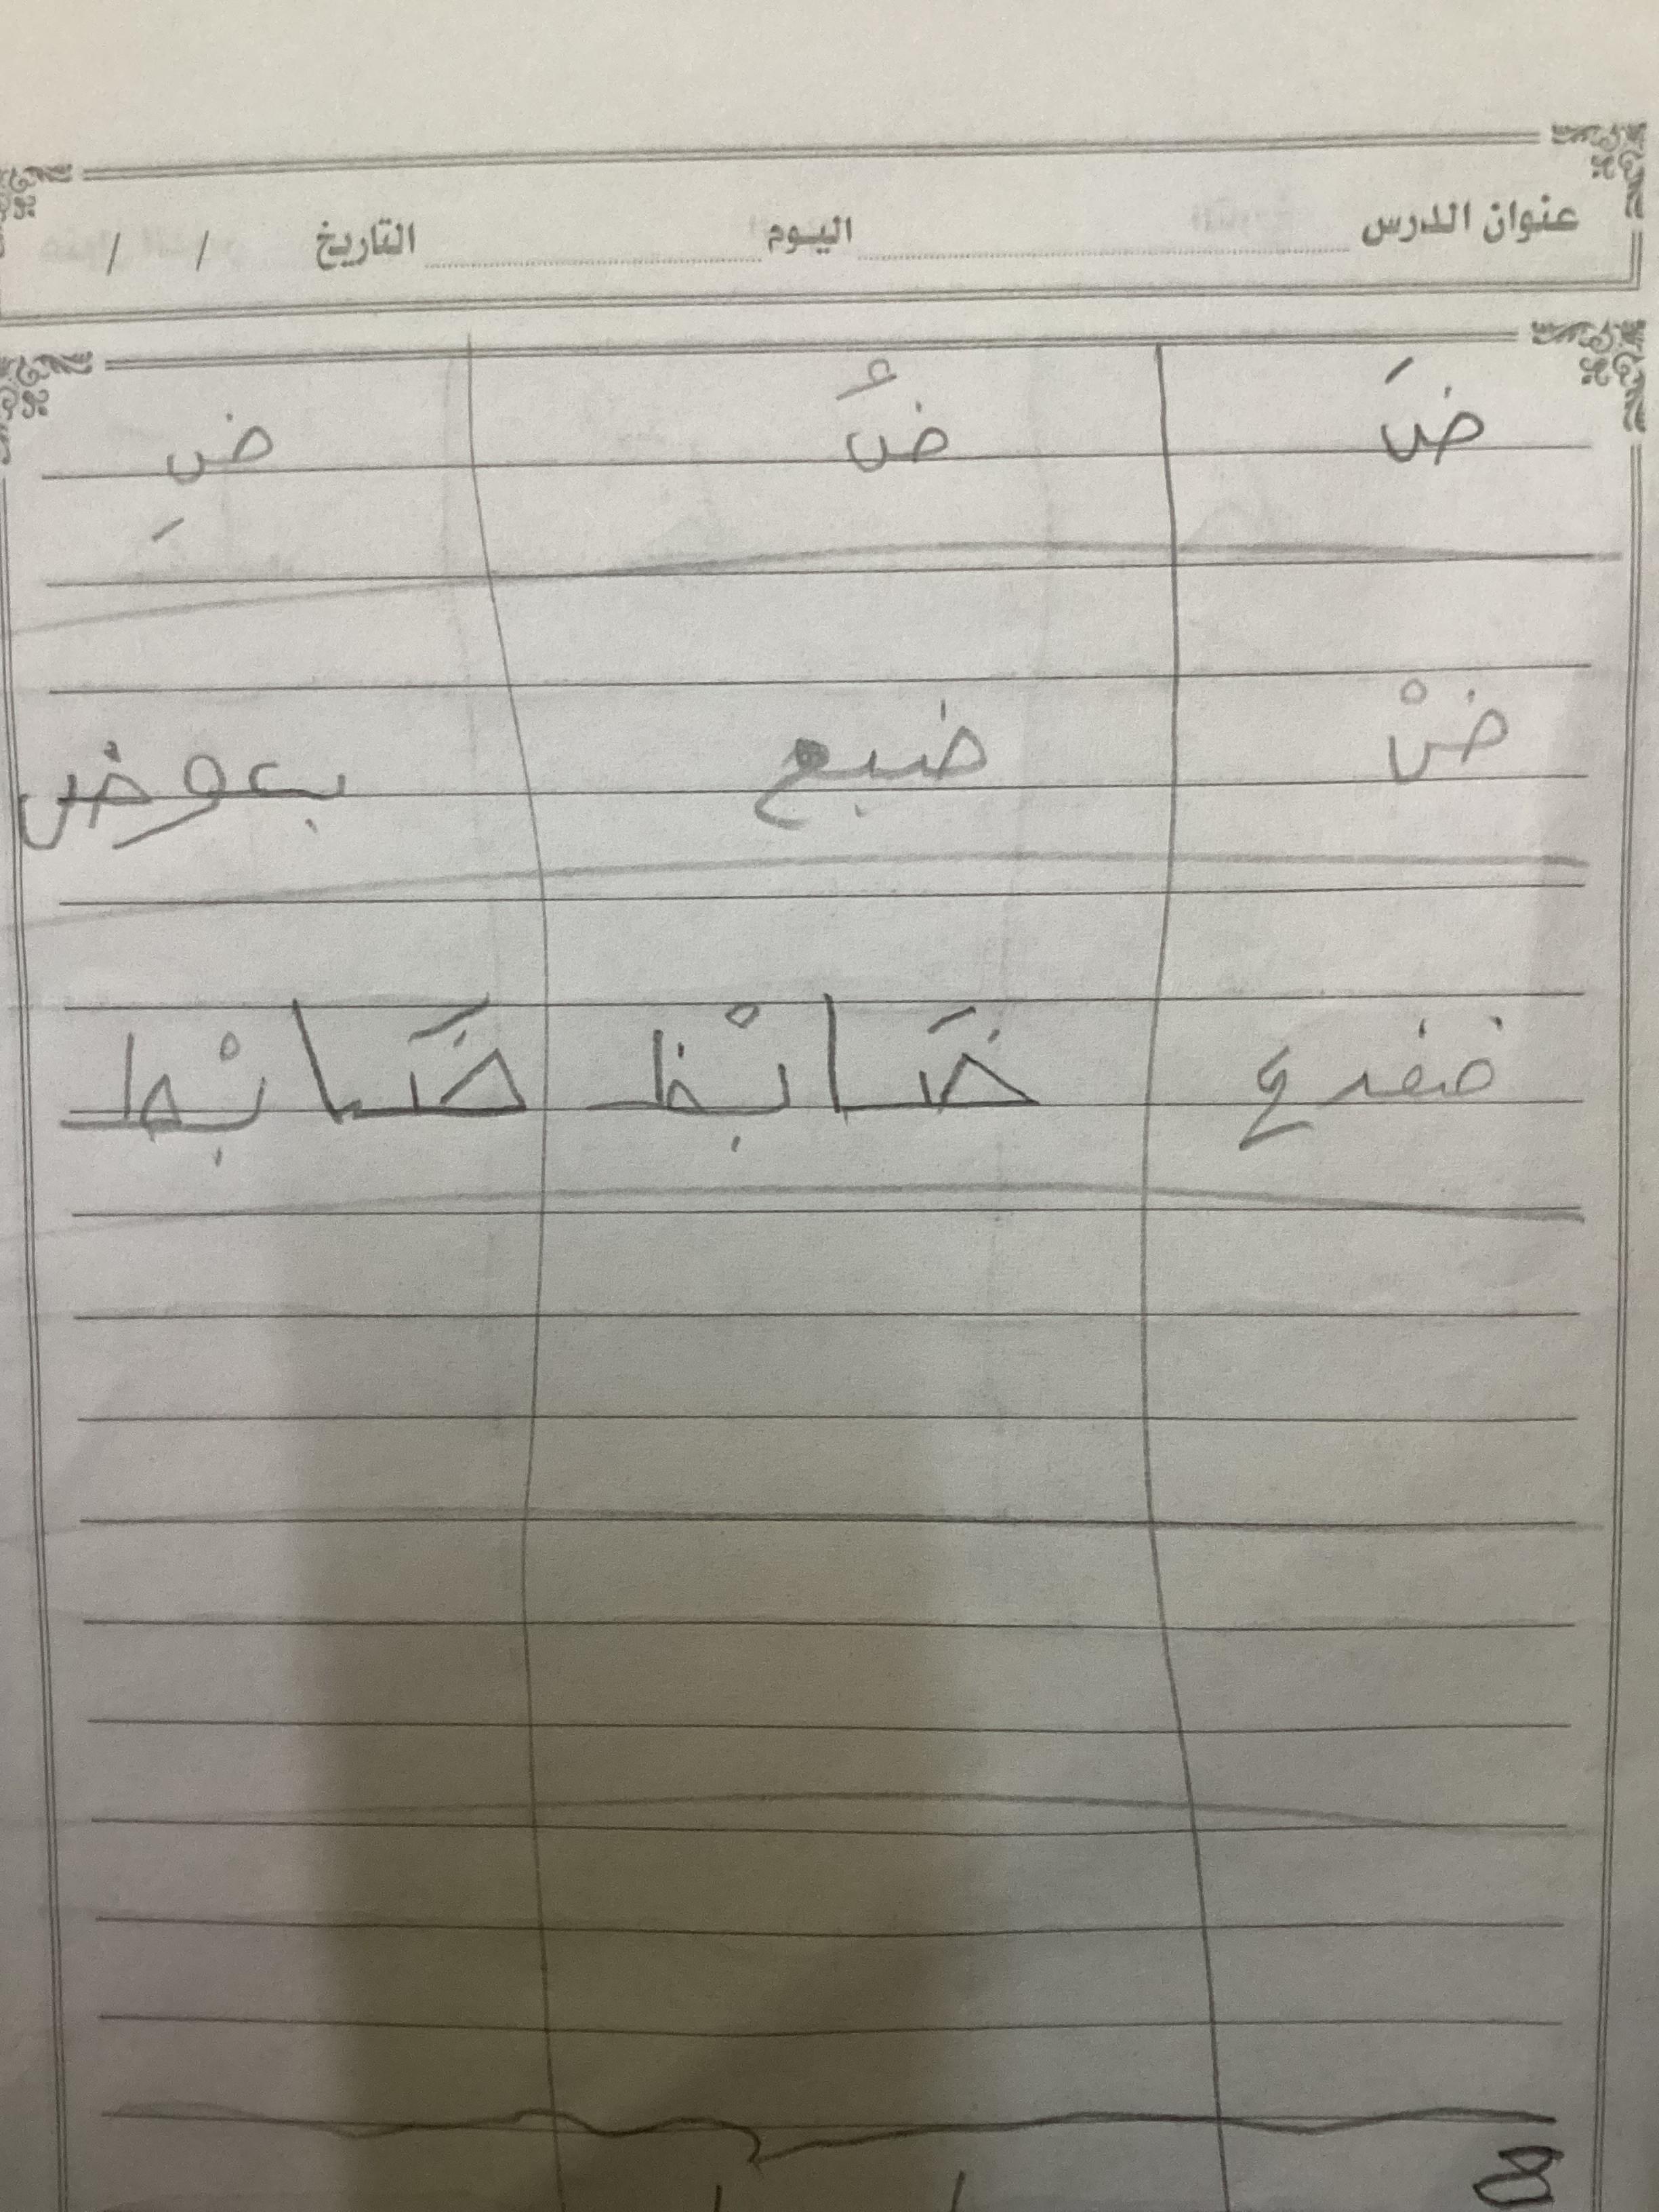 عنوان الدرس اليوم التاريخ / /
ضَ ضُ ضِ
ضْ ضبع بعوض
ضفدع ضَابْظ ضَابْط